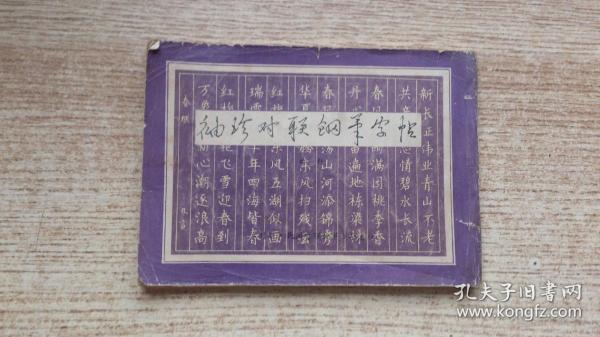 袖珍对联钢笔字帖
新长正伟业青山不老
共 情碧水长流
春风 满园桃李香
丹 遍地栋梁材
春风 荡山河添锦绣
华夏 腾东风拍残云
红梅 东风五湖似画
瑞雪 丰年四海皆春
红梅 花飞雪迎春到
万 心潮逐浪高
春联
孔夫子旧书网
www.kongfz.com